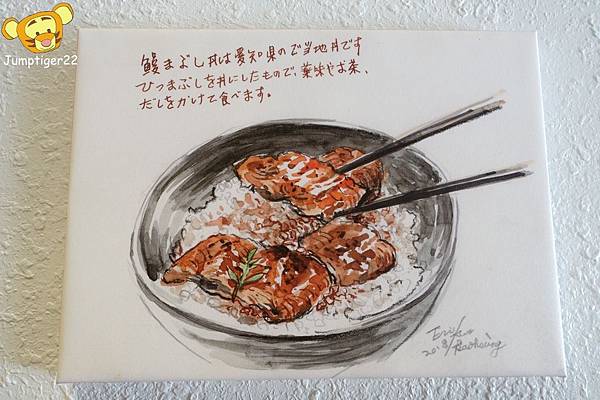 Jumptiger22
鰻まぶし丼は愛知県のご当地丼です
ひつまぶしを丼にしたもので、薬味やお茶、
だしをかけて食べます。